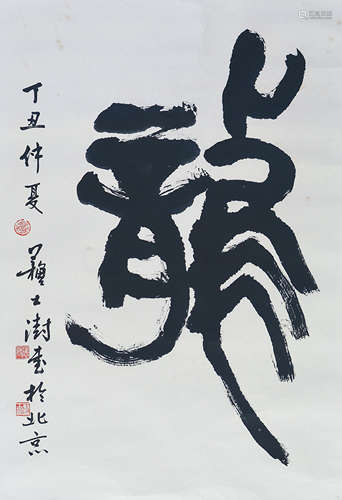 龍
丁丑仲夏
蘇士澍書於北京